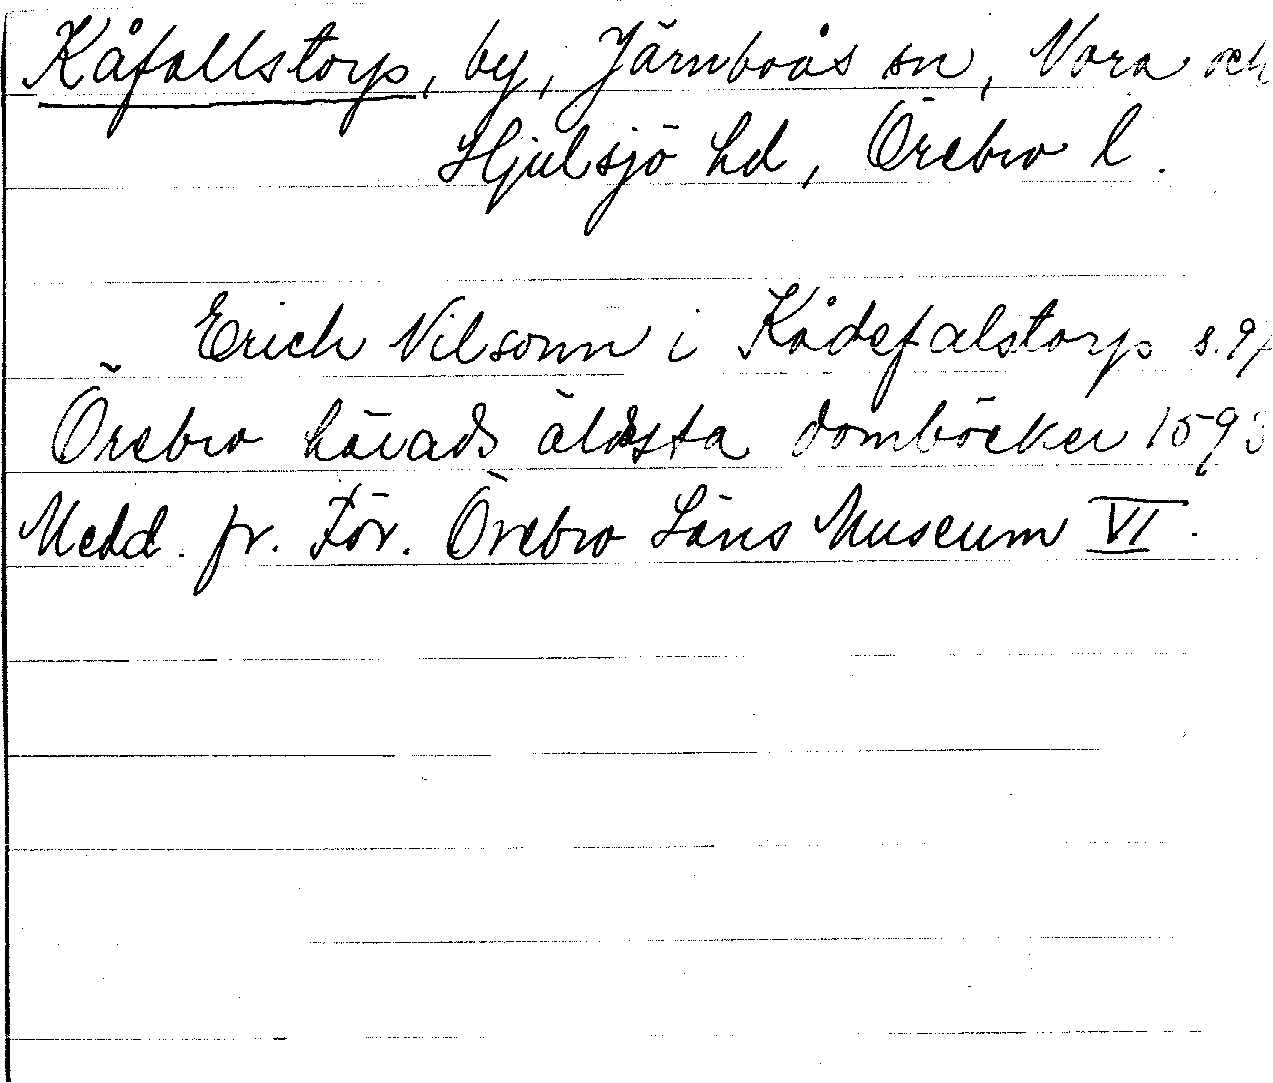 Kåfallstorp, by, Järnboås sn, Nora och
Hjulsjö hd, Örebro l.
Erich Nilsonn i Kådefalstorp s.97
Örebro härads äldsta domböcker 1593
Medd. fr. För. Örebro Läns Museum VI.